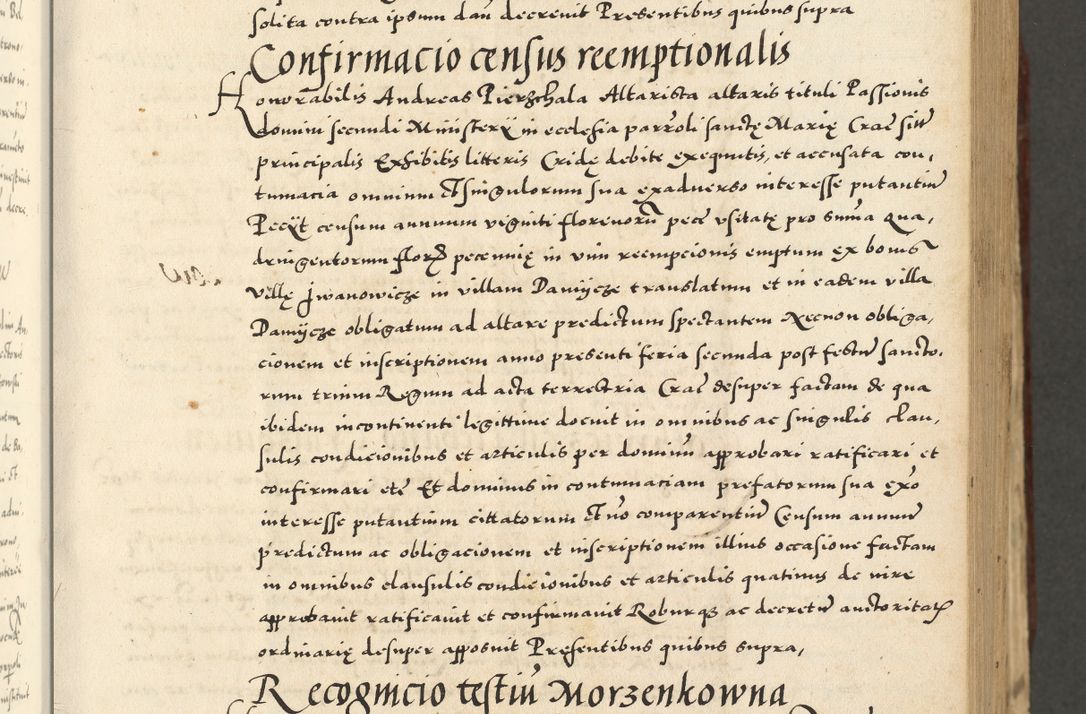 solita contra ipsum dari decrevit Presentibus quibus supra
Confirmacio census reemptionalis
Honorabilis Andreas Pierzchala Altarista altaris tituli Passionis
domini secundi Ministerÿ in ecclesia parroli sanctę Marię Crac̄ sitti
principalis Exhibitis litteris Cridę debite exequutis, et accusata con,
tumacia omnium et singulorum sua exadverso interesse putantiū
Peciÿt censum annuum viginti florenorū pecc̄ usitatę pro summa qua,
dringentorum flor̄ pecunię in vim reempcionis emptum ex bonis
villę Jwanowicze in villam Damÿcze translatum et in eadem villa
Damÿcze obligatum ad altare predictum spectantem Necnon obliga,
cionem et inscriptionem anno presenti feria secunda post festū sancto,
rum trium Regum ad acta terrestria Crac̄ desuper factam de qua
ibidem incontinenti legittime docuit in omnibus ac singulis clau,
sulis condicionibus et articulis per dominū approbari ratificari et
confirmari etc̄ Et dominus in contumaciam prefatorum sua exo
interesse putantium cittatorum et nō comparentiū Censum annuū
predictum ac obligacionem et inscriptionem illius occasione factam
in omnibus clausulis condicionibus et articulis quatinus de iure
approbavit ratificavit et confirmavit Roburq̢ ac decretū auctoritatis
ordinarię desuper apposuit Presentibus quibus supra,
Recognicio testiū Morzenkowna